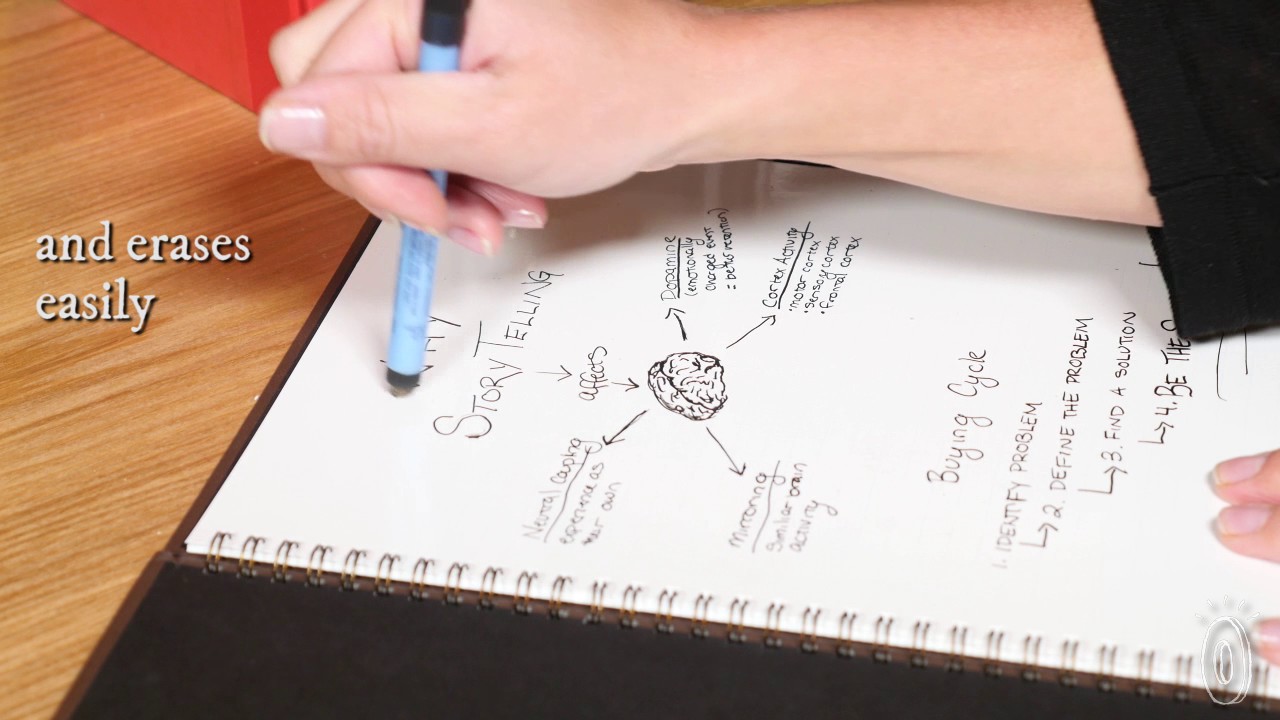 and erases
easily
STORY TELLING
affects
Dopamine
(emotionally
charged event
= better retention)
Cortex Activity
• motor cortex
• sensory cortex
• frontal cortex
Neural Coupling
experience as
own
Mirroring
Similiar brain
activity
Buying Cycle
1. IDENTIFY PROBLEM
2. DEFINE THE PROBLEM
3. FIND A SOLUTION
4. BE THE